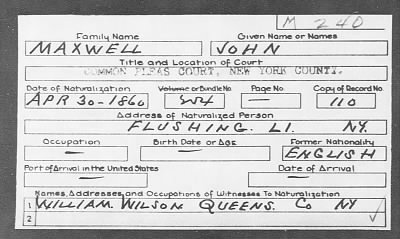 M 240
Family Name Given Name or Names
MAXWELL JOHN
Title and Location of Court
COMMON PLEAS COURT, NEW YORK COUNTY.
Date of Naturalization Volume or Bundle No Page No Copy of Record No
APR 30-1860 — 110
Address of Naturalized Person
FLUSHING. LI. NY.
Occupation Birth Date or Age Former Nationality
— — ENGLISH
Port of Arrival in the United States Date of Arrival
— —
Names, Addresses and Occupations of Witnesses To Naturalization
1 WILLIAM. WILSON QUEENS. Co NY
2